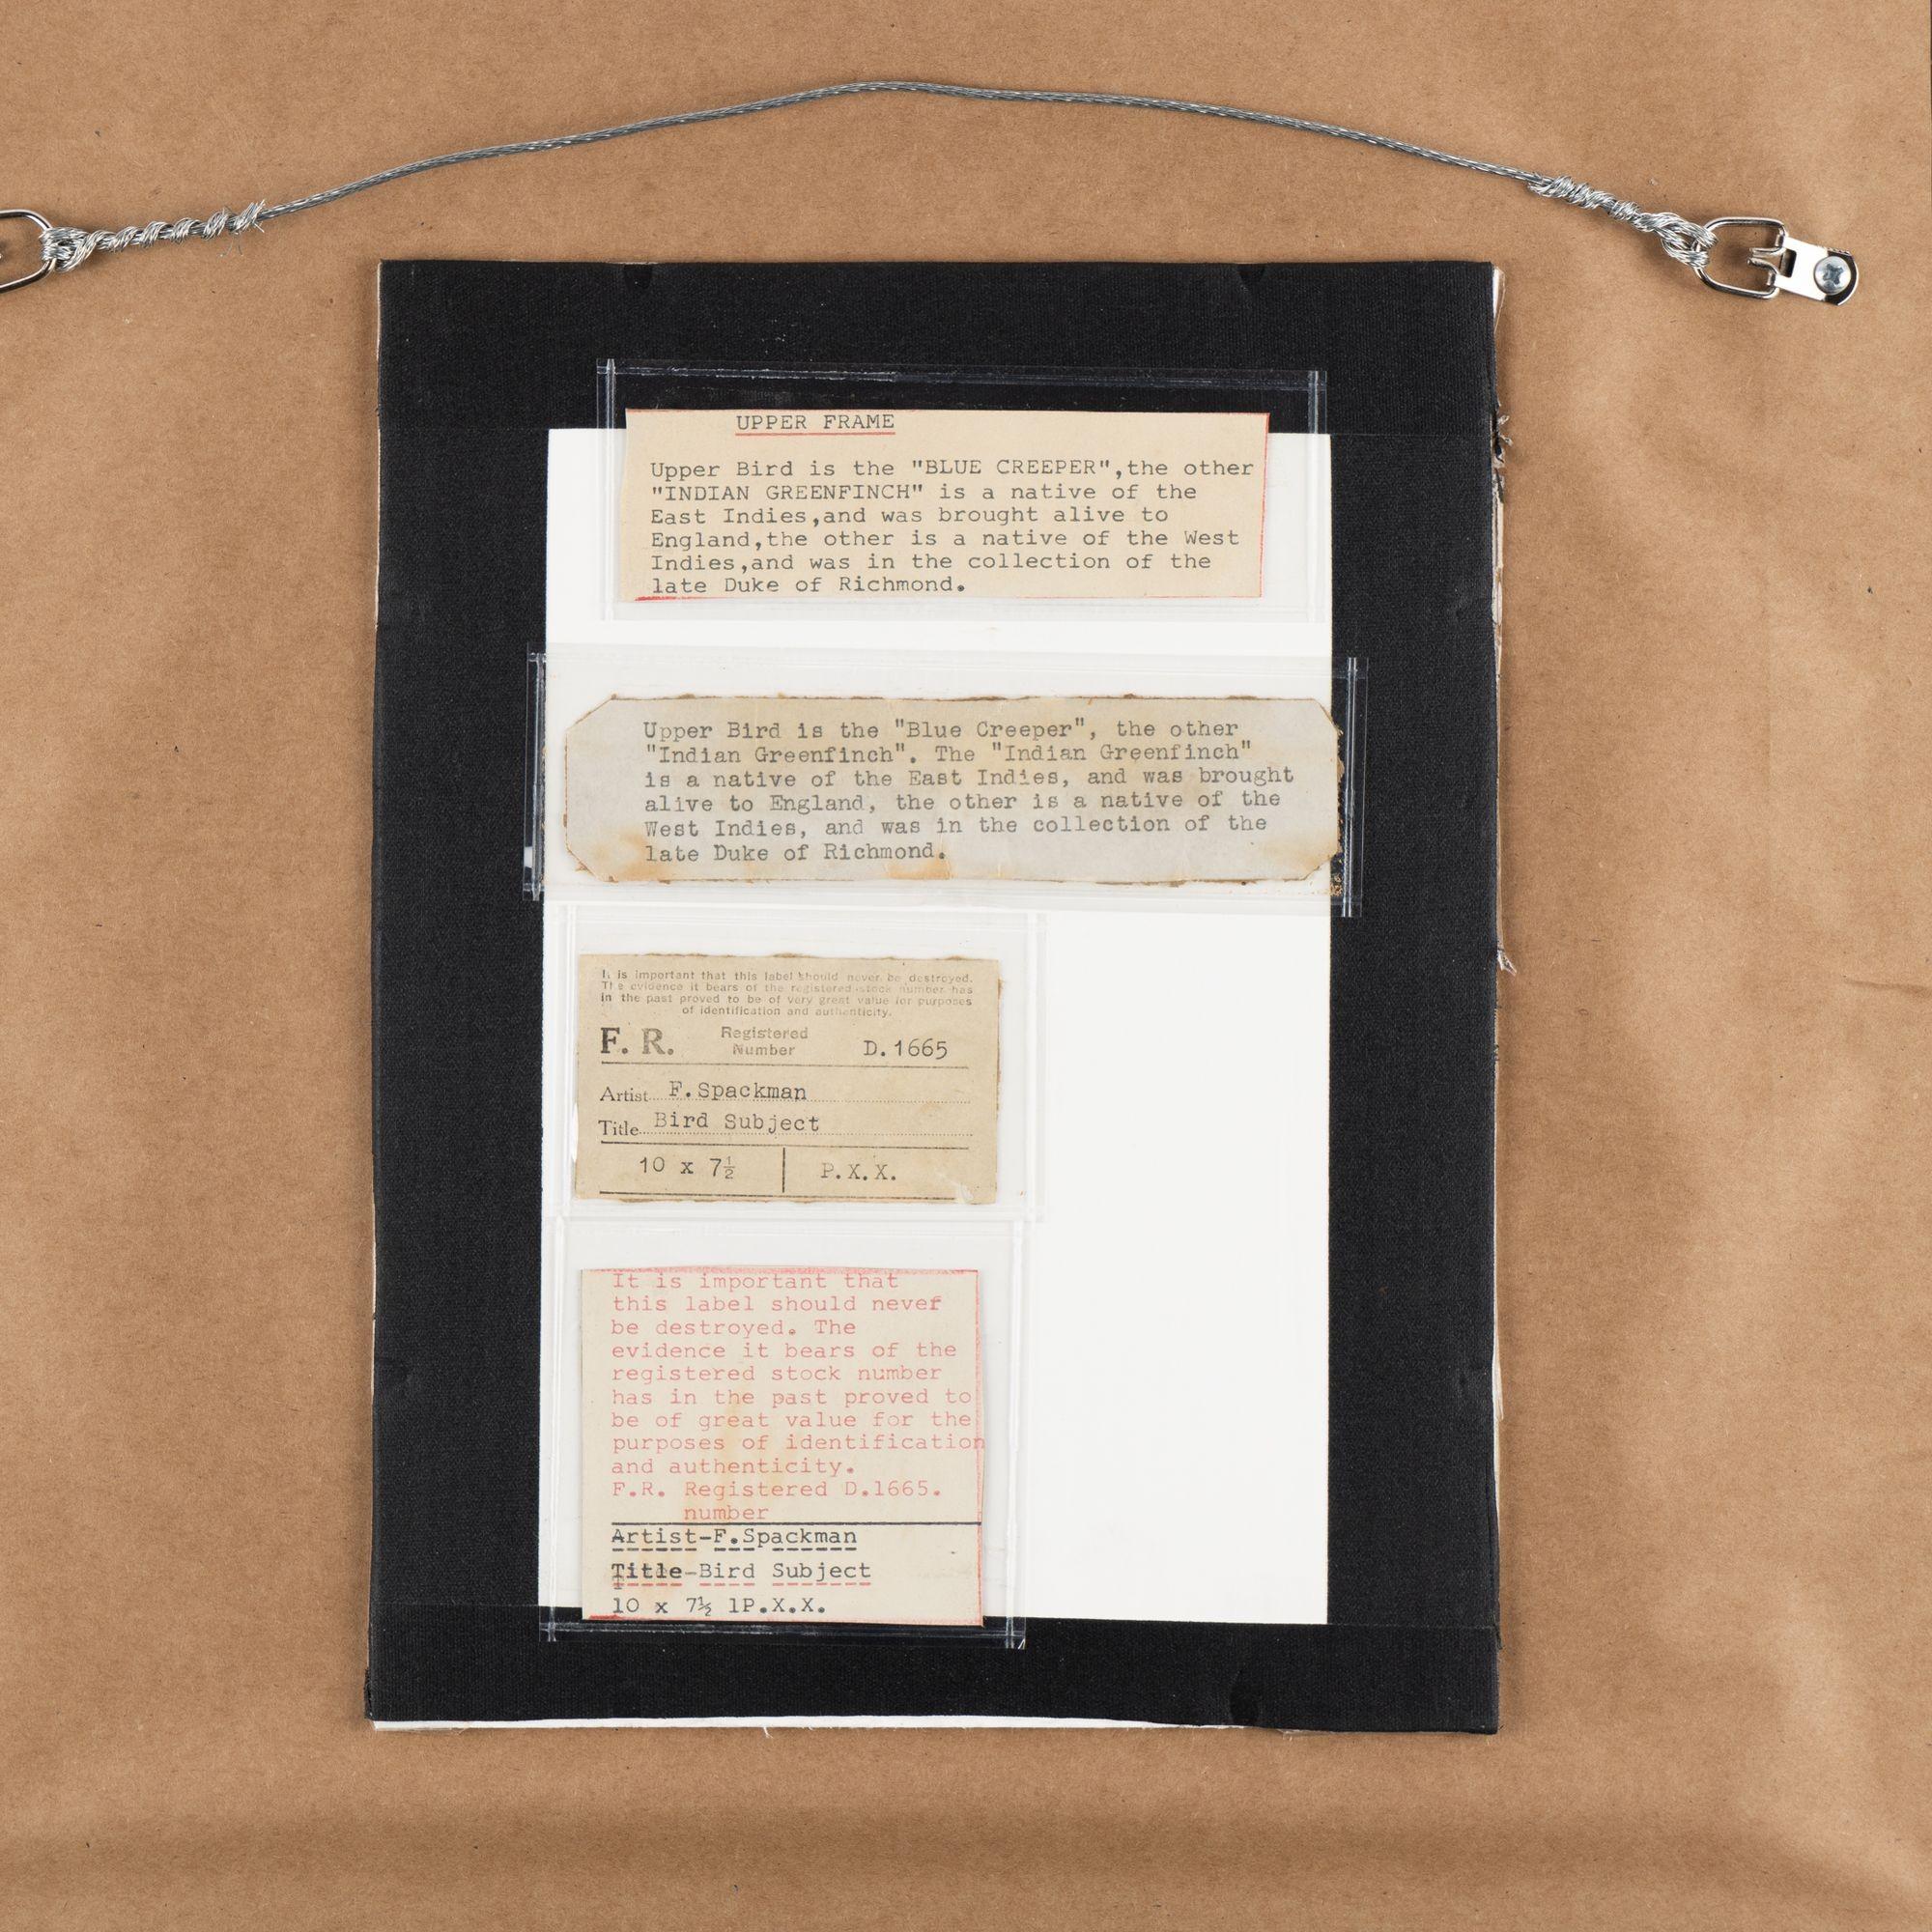 UPPER FRAME
Upper Bird is the "BLUE CREEPER",the other
"INDIAN GREENFINCH" is a native of the
East Indies,and was brought alive to
England,the other is a native of the West
Indies,and was in the collection of the
late Duke of Richmond.
Upper Bird is the "Blue Creeper", the other
"Indian Greenfinch". The "Indian Greenfinch"
is a native of the East Indies, and was brought
alive to England, the other is a native of the
West Indies, and was in the collection of the
late Duke of Richmond.
It is important that this label should never be destroyed.
The evidence it bears of the registered stock number has
in the past proved to be of very great value for purposes
of identification and authenticity.
F. R. Registered
Number D.1665
Artist F.Spackman
Title Bird Subject
10 x 7½ P.X.X.
It is important that
this label should never
be destroyed. The
evidence it bears of the
registered stock number
has in the past proved to
be of great value for the
purposes of identification
and authenticity.
F.R. Registered D.1665.
number
Artist-F.Spackman
Title-Bird Subject
10 x 7½ 1P.X.X.